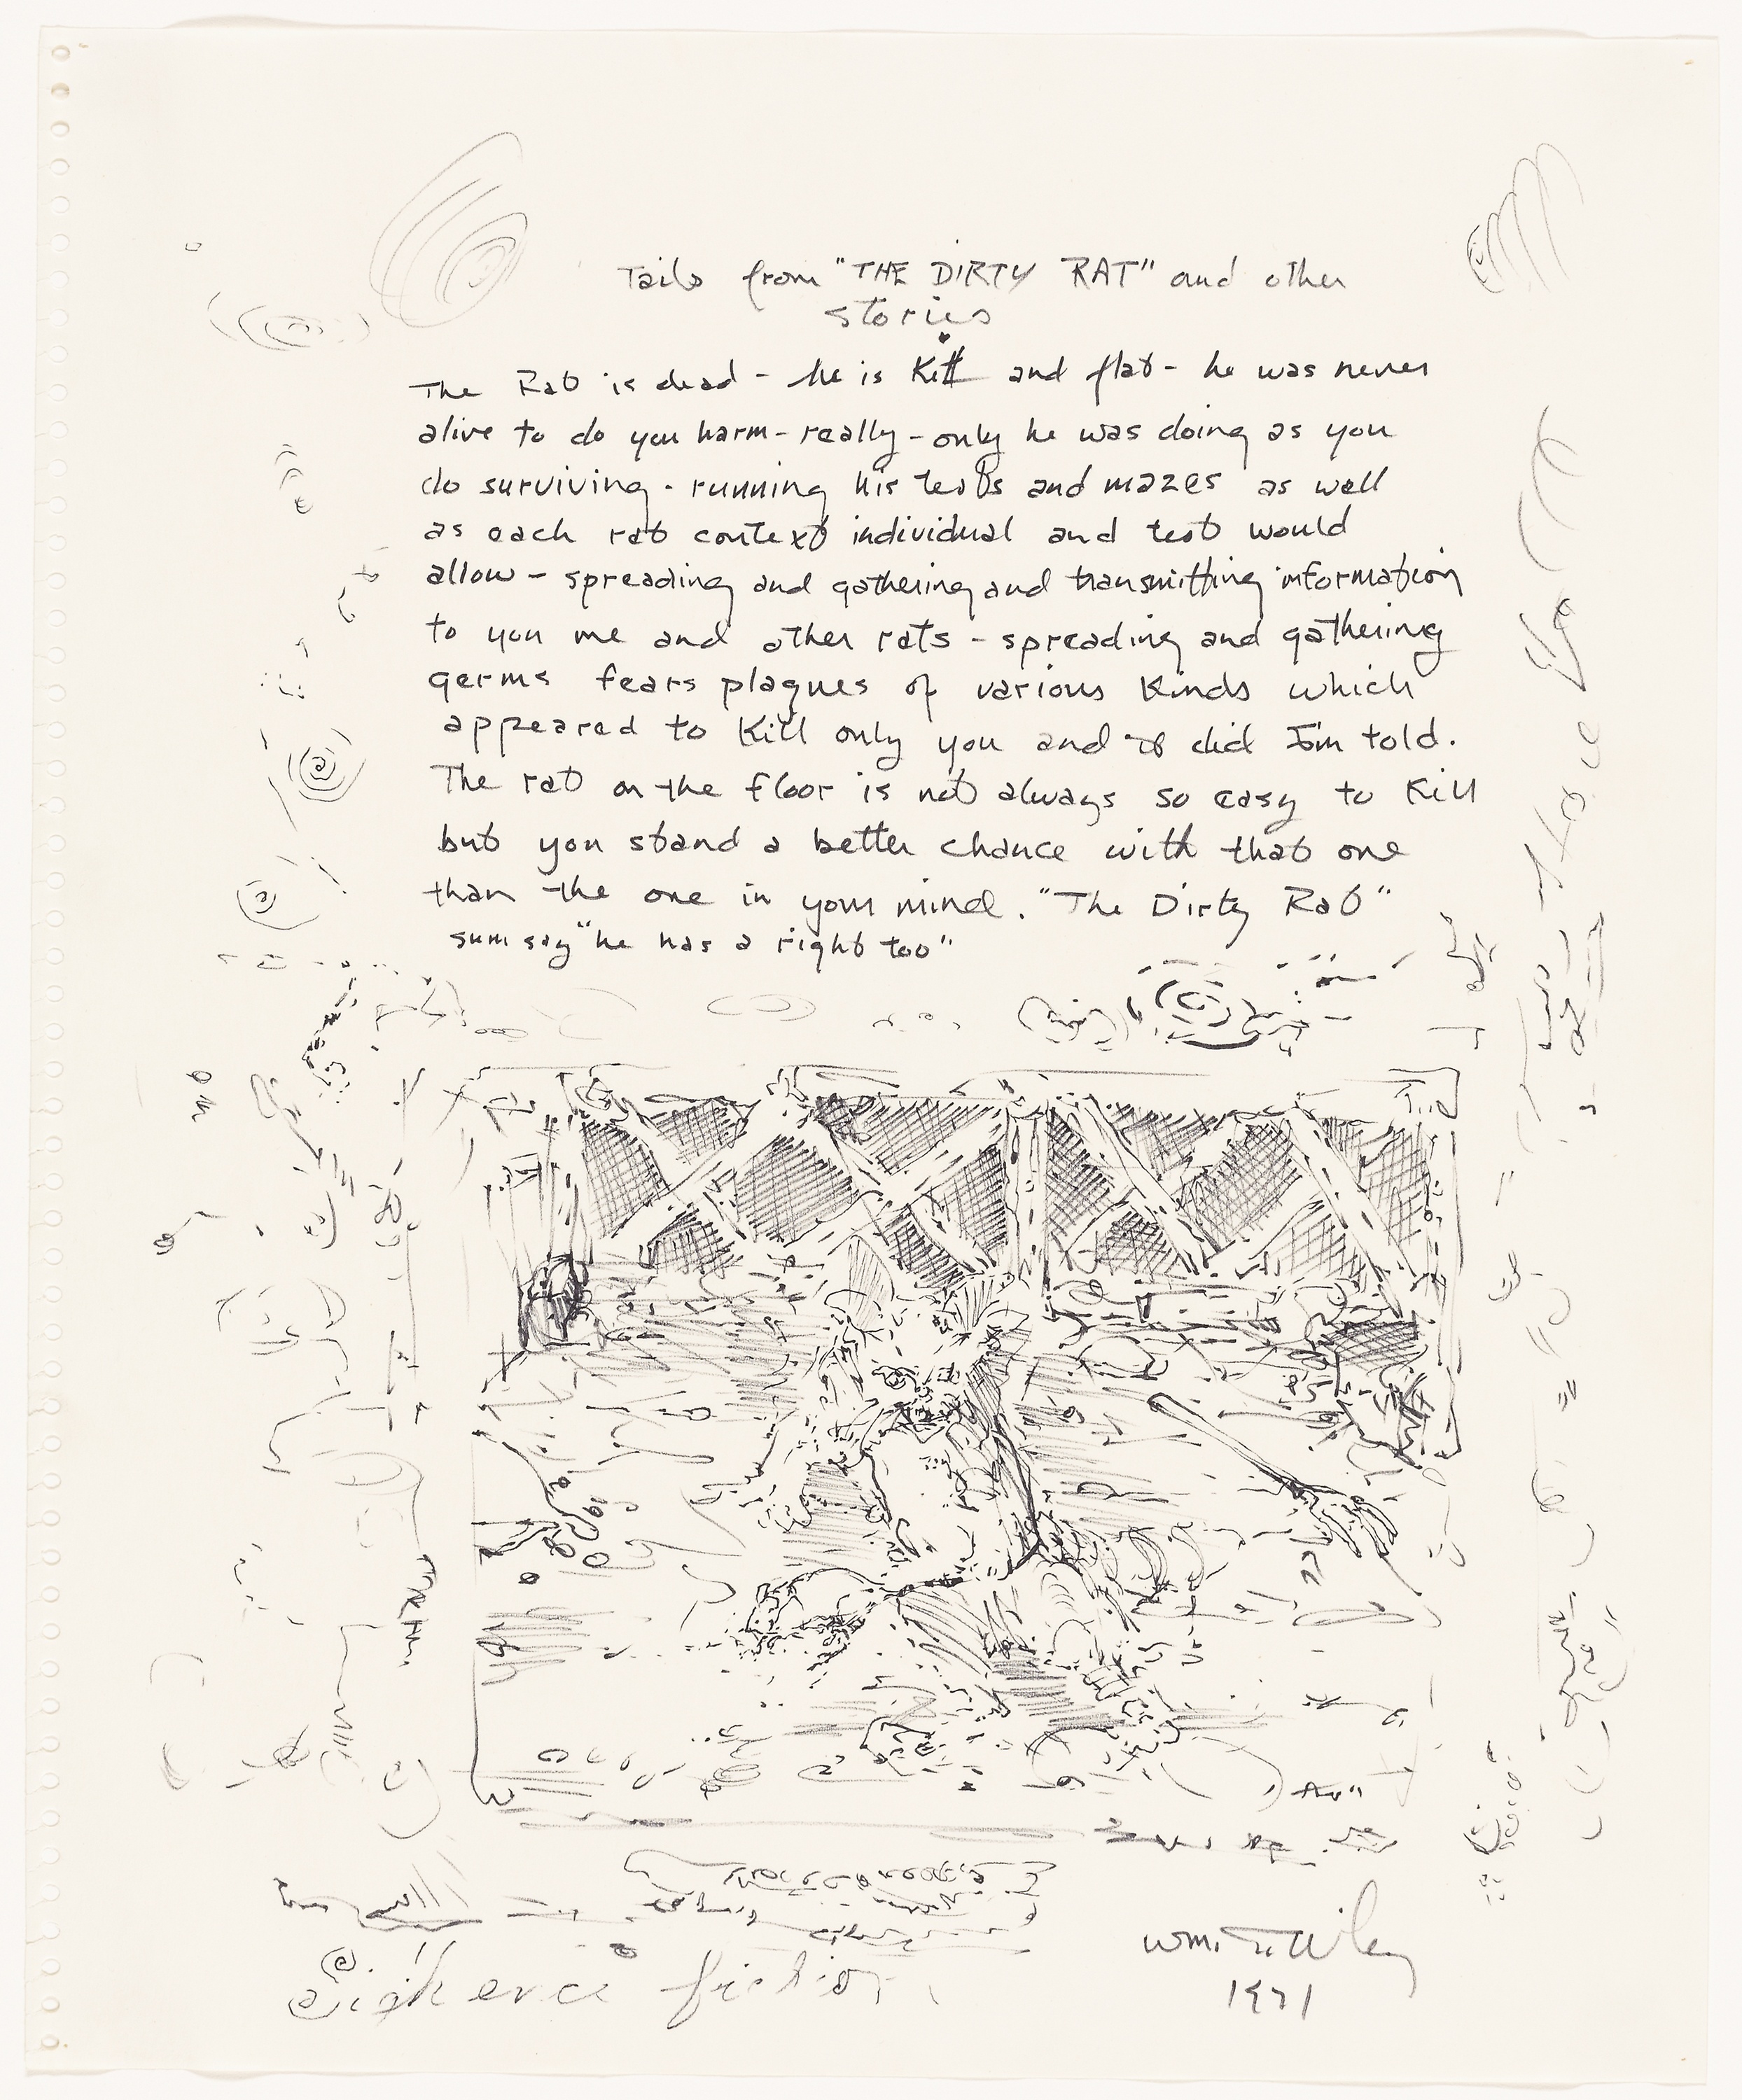 Tails from "THE DIRTY RAT" and other
stories
The Rat is dead - he is Kill and flat - he was never
alive to do you harm - really - only he was doing as you
do surviving - running his tests and mazes as well
as each rat context individual and test would
allow - spreading and gathering and transmitting information
to you me and other rats - spreading and gathering
germs fears plagues of various Kinds which
appeared to Kill only you and did I'm told.
The rat on the floor is not always so easy to Kill
but you stand a better chance with that one
than the one in your mind. "The Dirty Rat"
sum say "he has a right too"
fiction
Wm. T. Wiley
1971